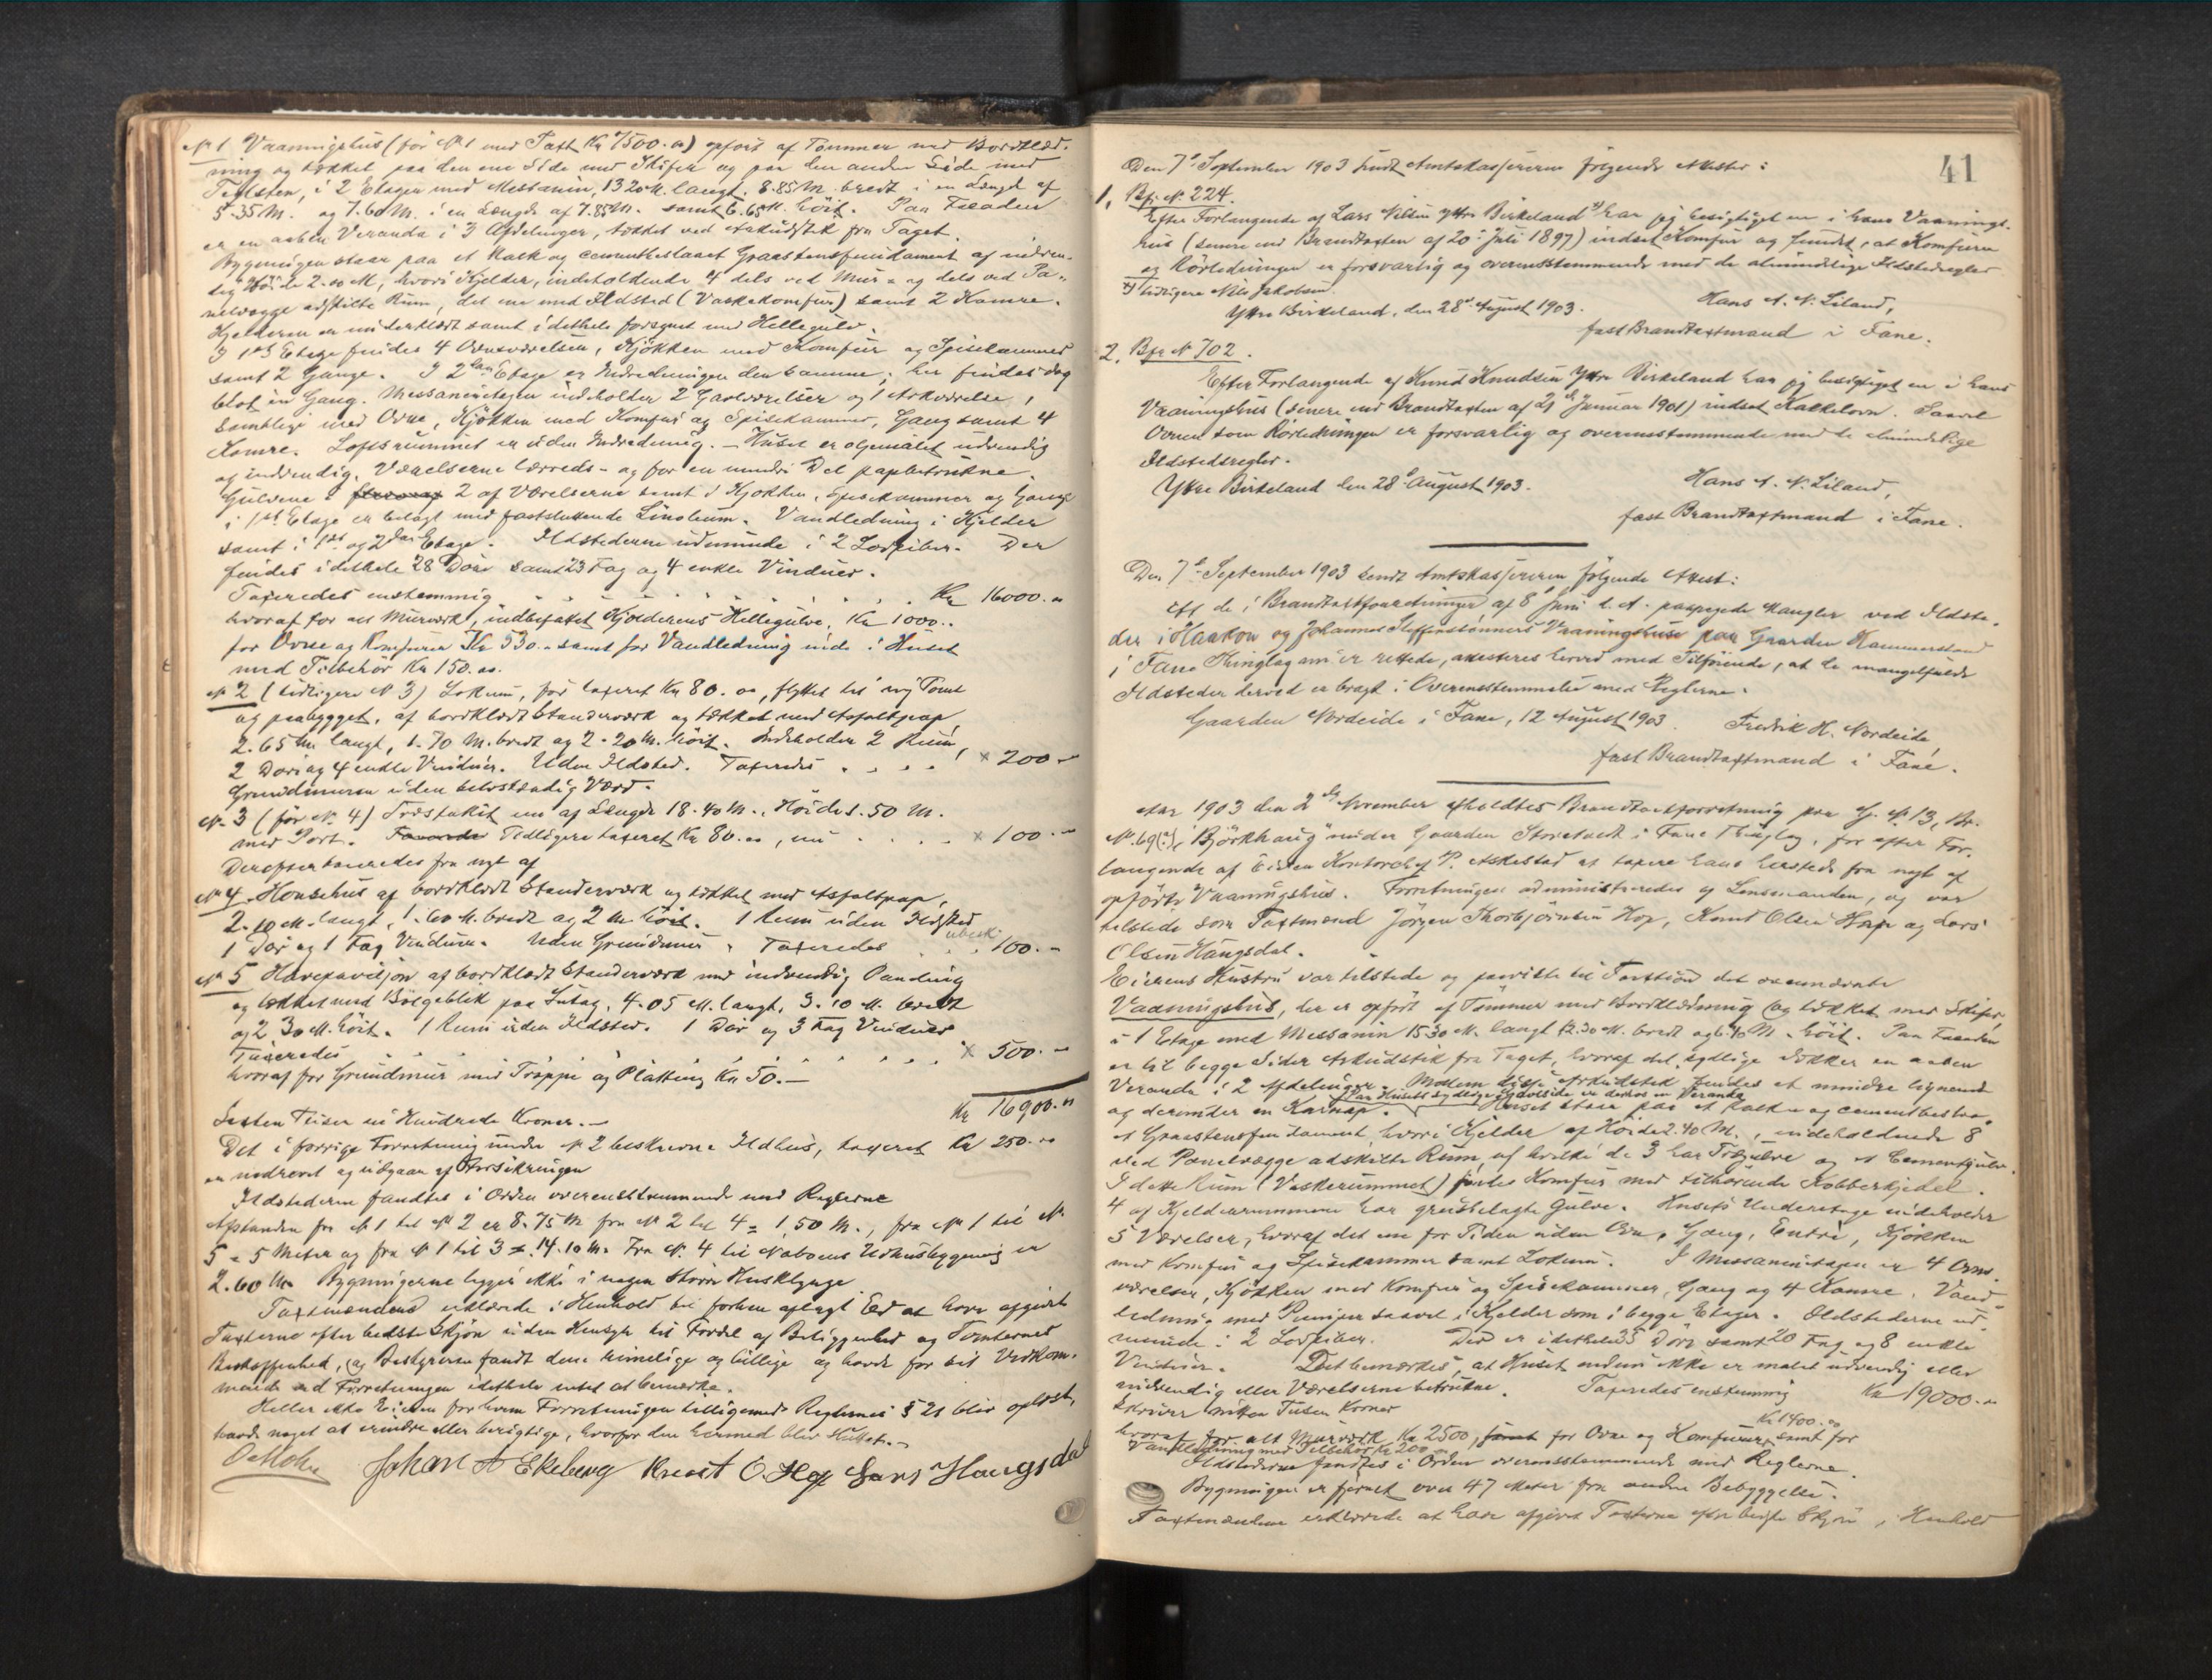 No 1 Vaaningshus (før No 1 med Taxt Kr 7500.00) opført af Tømmer med Bordklæd-
ning og tækket paa den ene Side med Skifer og paa den anden Side med
Teglsten, i 2 Etager med Messanin, 13.20 M. langt, 8.85 M. bredt i en Længde af
5.35 M. og 7.60 M. i en Længde af 7.85 M. samt 6.65 M. høit. Paa Facaden
er en aaben Veranda i 3 Afdelinger, tækket ved Arkudstik fra Taget.
Bygningen staar paa et Kalk og cementbeslaaet Graastensfundament af indven-
dig Høide 2.00 M, hvori Kjelder, indeholdende 4 dels ved Mur- og dels ved Pa-
nelvægge adskilte Rum, det ene med Ildsted (Vaskekomfur) samt 2 Kamre.
Kjelderen er underklædt samt idethele forsynet med Hellegulv.
I 1ste Etage findes 4 Ovnsværelser, Kjøkken med Komfur og Spisekammer
samt 2 Gange. I 2den Etage er Indredningen den samme; her findes dog
blot en Gang. Messaninetagen indeholder 2 Gavlværelser og 1 Arkværelse,
samtlige med Ovne, Kjøkken med Komfur og Spisekammer, Gang samt 4
Kamre. Loftsrummet er uden Indredning. – Huset er oljemalet udvendig
og indvendig. Værelserne lærreds- og for en mindre Del papbetrukne.
Gulvene i 2 af Værelserne samt i Kjøkken, Spisekammer og Gang
i 1ste Etage er belagt med fastsluttende Linoleum. Vandledning i Kjelder
samt i 1ste og 2den Etage. Ildstederne udmunde i 2 Lodpiber. Der
findes idethele 28 Døre samt 23 Fag og 4 enkle Vinduer.
Taxeredes enstemmig Kr 16000.00
hvoraf for alt Murværk, indbefattet Kjelderens Hellegulve, Kr 1000.-
for Ovne og Komfurer Kr 530.- samt for Vandledning inde i Huset
med Tilbehør Kr 150.00.
No 2 (tidligere No 3) Lokum, før taxeret Kr 80.00, flyttet til ny Tomt
og paabygget, af bordklædt Standerværk og tækket med Asfaltpap,
2.65 M. langt, 1.70 M. bredt og 2.20 M. høit. Indeholder 2 Rum,
2 Døre og 4 enkle Vinduer. Uden Ildsted. Taxeredes x 200.-
Grundmuren uden selvstændig Værd.
No 3 (før No. 4) Træstakit nu af Længde 18.40 M., Høide 1.50 M.
med Port. Tidligere taxeret Kr 80.00, nu x 100.-
Derefter taxeredes fra nyt af
No 4. Hønsehus af bordklædt Standerværk og tækket med Asfaltpap,
2.10 M. langt, 1.60 M. bredt og 2 M. høit. 1 Rum uden Ildsted
1 Dør og 1 Fag Vinduer. Uden Grundmur. Taxeredes ubesk. 100.-
No 5 Havepavillon af bordklædt Standerværk med indvendig Paneling
og tækket med Bølgeblik paa Sutag, 4.05 M. langt, 3.10 M. bredt
og 2.30 M. høit. 1 Rum uden Ildsted. 1 Dør og 3 Fag Vinduer
Taxeredes x 500.-
hvoraf for Grundmur med Trappe og Platting Kr 50.–
Kr 16900.00
Sexten Tusen ni Hundrede Kroner.–
Det i forrige Forretning under No 2 beskrevne Ildhus, taxeret Kr 250.00
er nedrevet og udgaar af Forsikringen
Ildstederne fandtes i Orden overensstemmende med Reglerne
Afstanden fra No 1 til No 2 er 8.75 M fra No 2 til 4 = 1.50 M., fra No 1 til No
5 = 5 Meter og fra No 1 til 3 = 14.10 M. Fra No. 4 til Naboens Udhusbygning er
2.60 M. Bygningerne ligger ikke i nogen større Husklynge.
Taxtmændene erklærede i Henhold til forhen aflagt Ed at have afgivet
Taxterne efter bedste Skjøn uden Hensyn til Fordel af Beliggenhed og Tomternes
Beskaffenhed, og Bestyreren fandt dem rimelige og billige og havde for sit Vedkom-
mende ved Forretningen idethele intet at bemærke.
Heller ikke Eieren for hvem Forretningen tilligemed Reglernes § 21 blev oplæst,
havde noget at erindre eller berigtige, hvorfor den hermed blev sluttet.–
O. Mohn Johan A Ekeberg Knut O. Hop Lars Haugsdal
41
Den 7de September 1903 sendt Amtskassereren følgende Attester:
1. Bfr. No. 224.
Efter Forlangende af Lars Nilsen Ytre Birkeland x) har jeg besigtiget en i hans Vaanings-
hus (senere end Brandtaxten af 20de Juli 1897) indsat Komfur og fundet, at Komfuren
og Rørledningen er forsvarlig og overensstemmende med de almindelige Ildstedsregler
x) tidligere Nils Jakobsen.
Ytre Birkeland, den 28de August 1903.
Hans A. N. Liland,
fast Brandtaxtmand i Fane.
2. Bfr No 702.
Efter Forlangende af Knud Knudsen Ytre Birkeland har jeg besigtiget en i hans
Vaaningshus (senere end Brandtaxten af 21de Januar 1901) indsat Kakkelovn. Saavel
Ovnen som Rørledningen er forsvarlig og overensstemmende med de almindelige
Ildstedsregler.
Ytre Birkeland den 28de August 1903.
Hans A. N. Liland,
fast Brandtaxtmand i Fane.
Den 7de September 1903 sendt Amtskassereren følgende Attest:
At de i Brandtaxtforretninger af 8de Juni d. A. paapegede Mangler ved Ildste-
der i Haakon og Johannes Steffensønners Vaaningshuse paa Gaarden Hammersland
i Fane Thinglag nu er rettede, attesteres herved med Tilføiende, at de mangelfulde
Ildsteder derved er bragt i Overensstemmelse med Reglerne.
Gaarden Nordeide i Fane, 12 August 1903. Fredrik H. Nordeide,
fast Brandtaxtmand i Fane.
Aar 1903 den 2den November afholdtes Brandtaxtforretning paa G. No 13, Br.
No. 69(?), "Bjørkhaug" under Gaarden Storetvedt i Fane Thinglag, for efter For-
langende af Eieren Kontorchef P. Askestad at taxere hans hersteds fra nyt af
opførte Vaaningshus. Forretningen administreredes af Lensmanden, og var
tilstede som Taxtmænd Jørgen Thorbjørnsen Hop, Knut Olsen Hop og Lars
Olsen Haugsdal.
Eierens Hustru var tilstede og paaviste til Taxation det ovennævnte
Vaaningshus, der er opført af Tømmer med Bordklædning og tækket med Skifer,
i 1 Etage med Messanin 15.30 M. langt, 12.30 M. bredt og 6.40 M. høit. Paa Facaden
er til begge Sider Arkudstik fra Taget, hvoraf det sydlige dækker en aaben
Veranda i 2 Afdelinger. Mellem disse Arkudstik findes et mindre lignende
og derunder en Karnap. Paa Husets sydlige Gavlside er derhos en Veranda. Huset staar paa et kalk- og cementbeslaa-
et Graastensfundament, hvori Kjelder af Høide 2.40 M., indeholdende 8
ved Panelvægge adskilte Rum, af hvilke de 3 har Trægulve og et Cementgulv.
I dette Rum (Vaskerummet) findes Komfur med tilhørende Kobberkjedel.
4 af Kjelderrummene har grusbelagte Gulve. Husets Underetage indeholder
5 Værelser, hvoraf det ene for Tiden uden Ovn, Gang, Entré, Kjøkken
med Komfur og Spisekammer samt Lokum. I Messaninetagen er 4 Ovns-
værelser, Kjøkken med Komfur og Spisekammer, Gang og 4 Kamre. Vand-
ledning med Pumper saavel i Kjelder som i begge Etager. Ildstederne ud-
munde i 2 Lodpiber. Der er idethele 35 Døre samt 20 Fag og 8 enkle
Vinduer. Det bemærkes, at Huset endnu ikke er malet udvendig eller
indvendig eller Værelserne betrukne. Taxeredes enstemmig Kr 19000.00
skriver nitten Tusen Kroner
hvoraf for alt Murværk Kr 2500, for Ovne og Komfurer Kr 1400.00 samt for
Vandledning med Tilbehør Kr 200.00
Ildstederne fandtes i Orden overensstemmende med Reglerne.
Bygningen er fjernet over 47 Meter fra anden Bebyggelse.
Taxtmændene erklærede at have afgivet Taxterne efter bedste Skjøn i Henhold